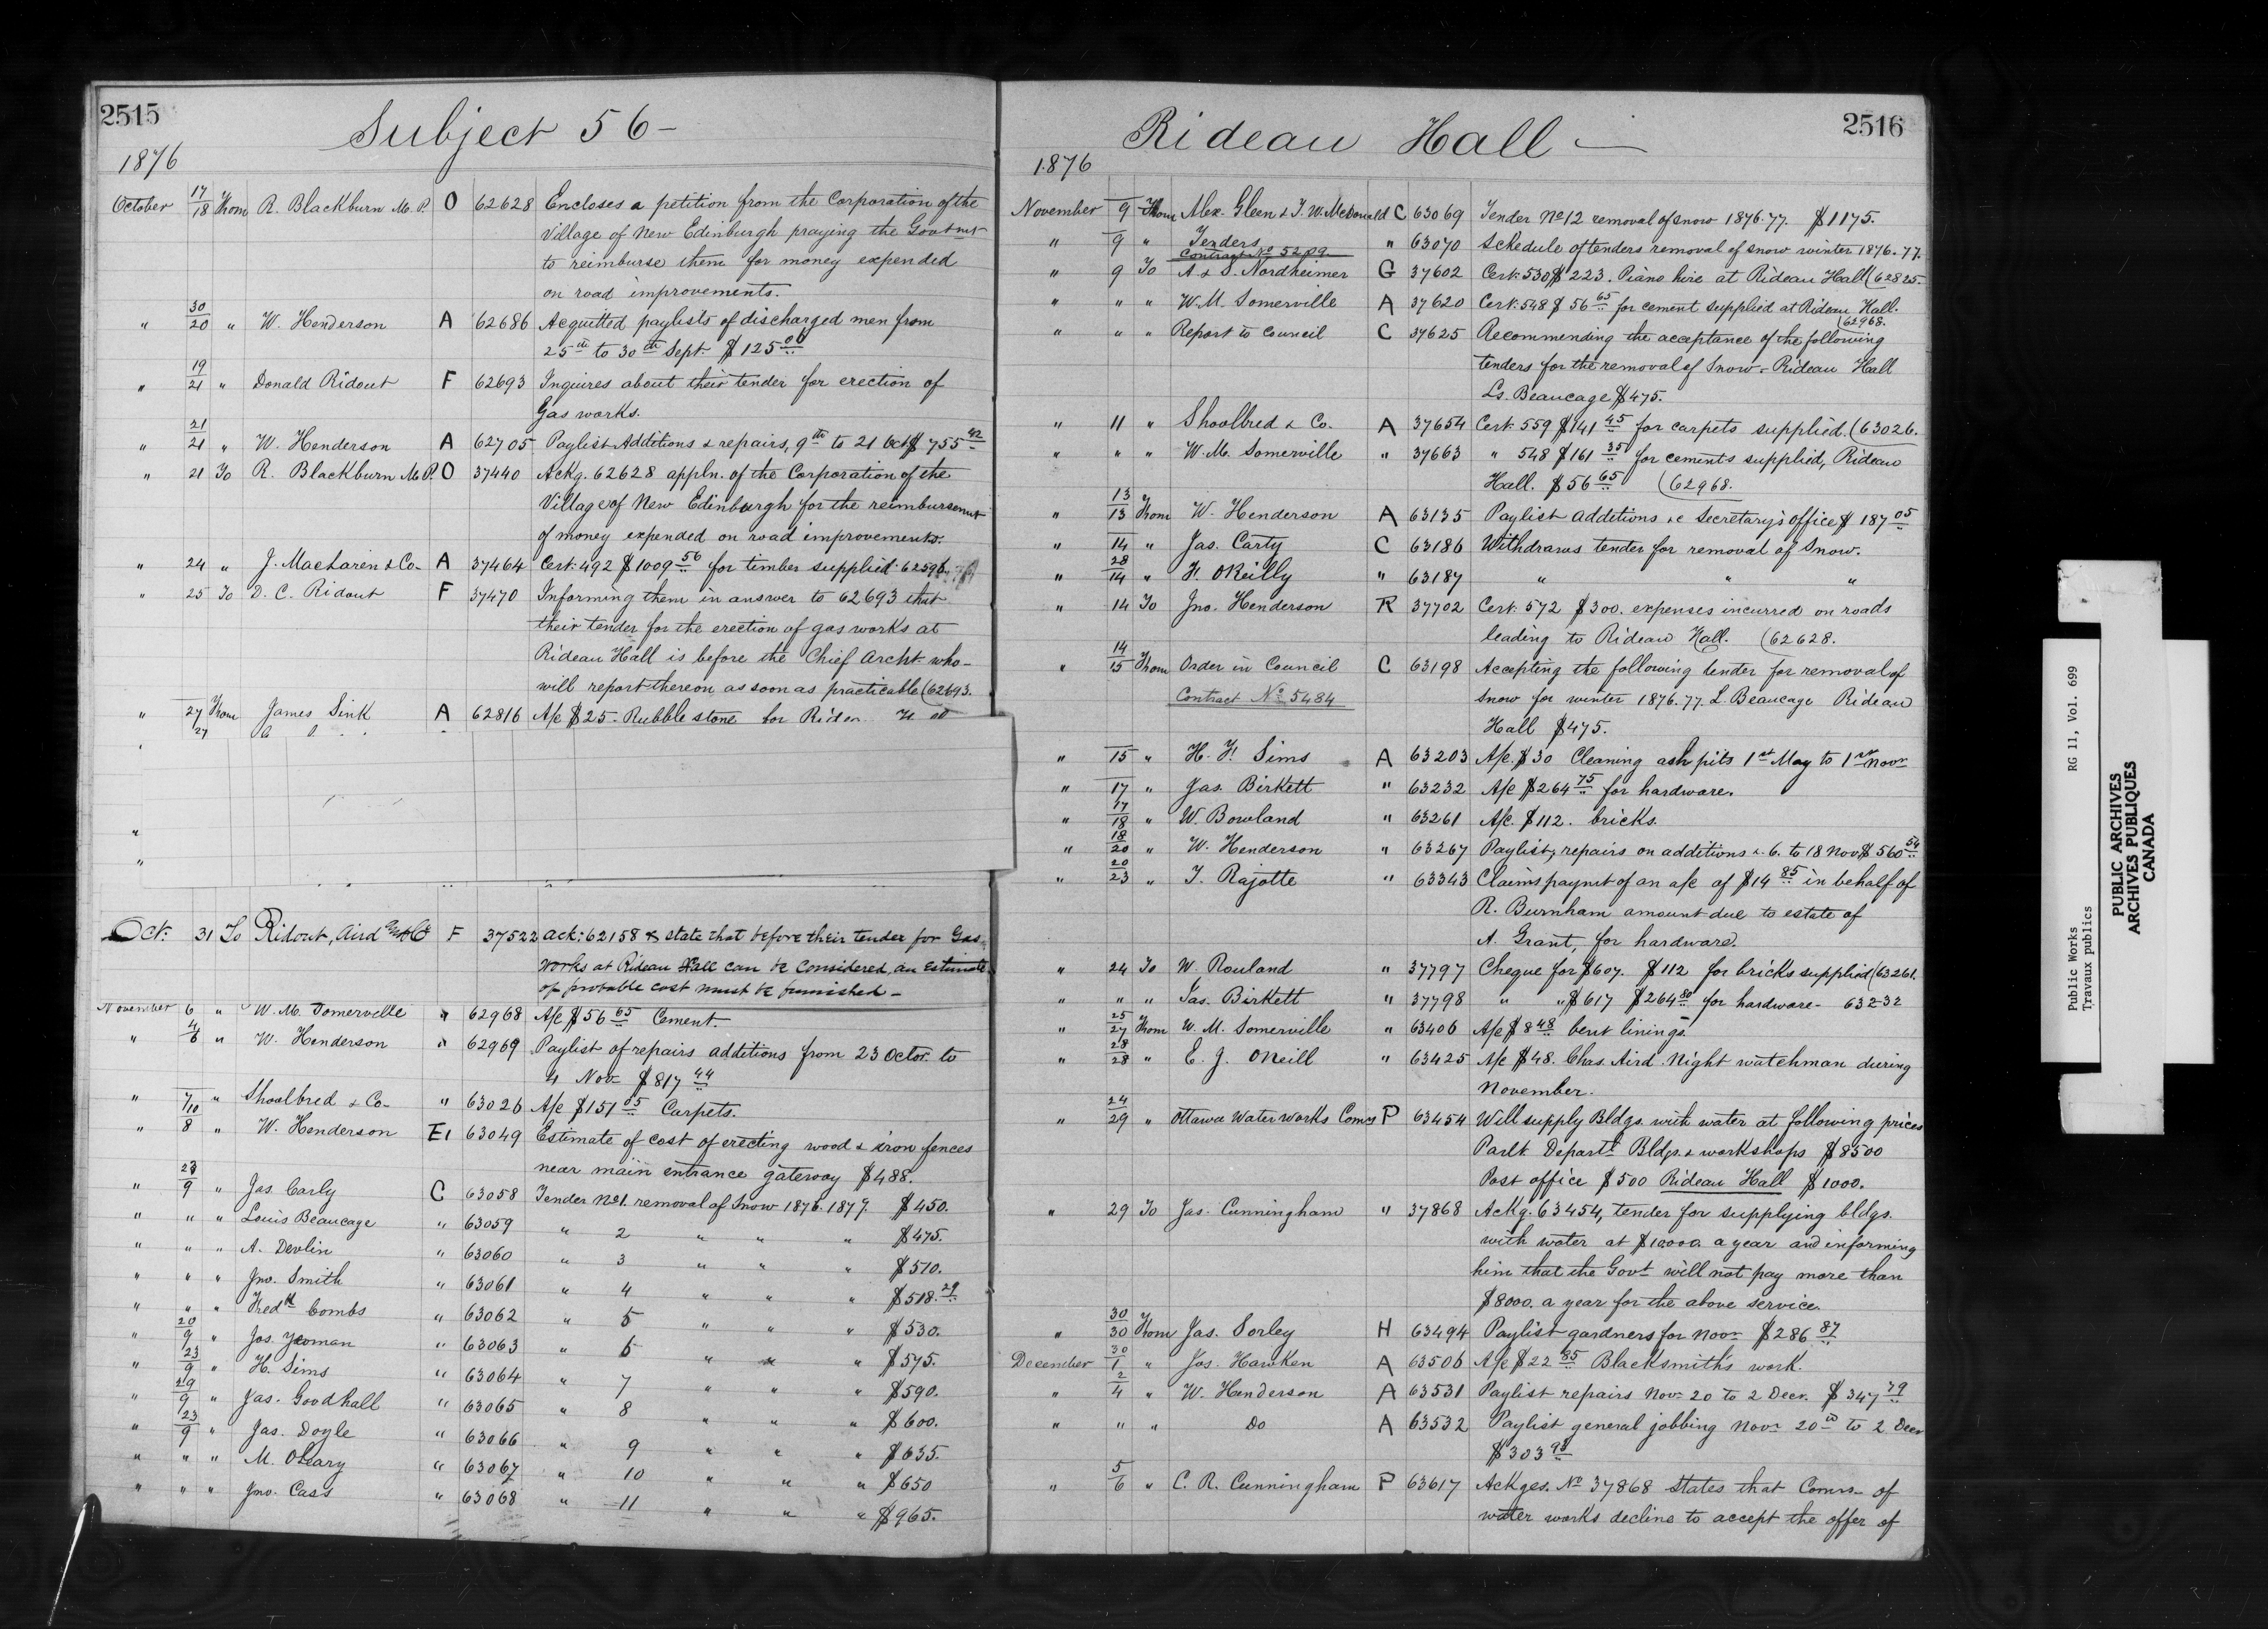 2515
Subject 56 -
1876
October 17/18 From R. Blackburn M. P. O 62628 Encloses a petition from the Corporation of the
Village of New Edinburgh praying the Govtmt
to reimburse them for money expended
on road improvements.
" 30/20 " W. Henderson A 62686 Acquitted paylists of discharged men from
25th to 30th Sept. $125.00
" 19/21 " Donald Ridout F 62693 Inquires about their tender for erection of
Gas works.
" 21/21 " W. Henderson A 62705 Paylist Additions & repairs, 9th to 21 Oct $755.42
" 21 To R. Blackburn M. P. O 37440 Ackg. 62628 appln. of the Corporation of the
Village of New Edinburgh for the reimbursemnt
of money expended on road improvements.
" 24 " J. MacLaren & Co- A 37464 Cert. 492 $1009.56 for timber supplied
" 25 To D. C. Ridout F 37470 Informing them in answer to 62693 that
their tender for the erection of gas works at
Rideau Hall is before the Chief Archt. who-
will report thereon as soon as practicable (62693.
" 27/27 From James Sink A 62816 A/c $25- Rubble stone for
"
"
Oct. 31 To Ridout, Aird & Co F 37522 Ack: 62158 & state that before their tender for Gas-
works at Rideau Hall can be Considered, an Estimate
of probable cost must be furnished-
November 6 " W. M. Somerville " 62968 A/c $56.65 Cement.
" 4/6 " W. Henderson " 62969 Paylist of repairs additions from 23 Octor. to
4 Nov- $817.44
" 7/10 " Shoolbred & Co- " 63026 A/c $151.05 Carpets.
" 8 " W. Henderson E1 63049 Estimate of cost of erecting wood & iron fences
near main entrance gateway $488.
" 23/9 " Jas. Carly C 63058 Tender No 1. removal of Snow 1876. 1877. $450.
" " " Louis Beaucage " 63059 " 2 " " " $475.
" " " A. Devlin " 63060 " 3 " " " $510.
" " " Jno. Smith " 63061 " 4 " " " $518.29
" " " Fredk Combs " 63062 " 5 " " " $530.
" 20/9 " Jos. Yeoman " 63063 " 6 " " " $575.
" 23/9 " H. Sims " 63064 " 7 " " " $590.
" 29/9 " Jas. Goodhall " 63065 " 8 " " " $600.
" 23/9 " Jas. Doyle " 63066 " 9 " " " $635.
" " " M. OLeary " 63067 " 10 " " " $650
" " " Jno. Cass " 63068 " 11 " " " $965.
2516
Rideau Hall -
1876
November 9 From Alex. Gleen & T. W. McDonald C 63069 Tender No 12 removal of snow 1876.77. $1175.
" 9 " Tenders " 63070 Schedule of tenders removal of snow winter 1876.77.
Contract No 5209
" 9 To A & S. Nordheimer G 37602 Cert. 530 $223. Piano hire at Rideau Hall (62825.
" " " W. M. Somerville A 37620 Cert. 548 $56.65 for cement supplied at Rideau Hall.
(62968.
" " " Report to Council C 37625 Recommending the acceptance of the following
tenders for the removal of Snow- Rideau Hall
Ls. Beaucage $475.
" 11 " Shoolbred & Co. A 37654 Cert. 559 $141.45 for carpets supplied. (63026.
" " " W. M. Somerville " 37663 " 548 $161.35 for cements supplied, Rideau
Hall. $56.65 (62968.
" 13/13 From W. Henderson A 63135 Paylist additions &c Secretary's office $187.05
" 14 " Jas. Carty C 63186 Withdraws tender for removal of Snow.
" 28/14 " F. OReilly " 63187 " " "
" 14 To Jno. Henderson R 37702 Cert. 572 $300. expenses incurred on roads
leading to Rideau Hall. (62628.
" 14/15 From Order in Council C 63198 Accepting the following tender for removal of
Contract No 5484 snow for winter 1876.77. L. Beaucage Rideau
Hall $475.
" 15 " H. F. Sims A 63203 A/c. $30 Cleaning ash pits 1st May to 1st Novr
" 17 " Jas. Birkett " 63232 A/c $264.75 for hardware.
" 17/18 " W. Bowland " 63261 A/c. $112. bricks.
" 18/20 " W. Henderson " 63267 Paylist, repairs on additions &. 6. to 18 Nov $560.54
" 20/23 " T. Rajotte " 63343 Claims paymt of an a/c of $14.85 in behalf of
R. Burnham amount due to estate of
A. Grant, for hardware.
" 24 To W. Rouland " 37797 Cheque for $607. $112 for bricks supplied (63261.
" " " Jas. Birkett " 37798 " " $617 $264.80 for hardware- 63232
" 25/27 From W. M. Somerville " 63406 A/c $8.48 bent linings
" 28/28 " E. J. ONeill " 63425 A/c $48. Chas. Aird. Night watchman during
November.
" 24/29 " Ottawa Water Works Comrs P 63454 Will supply Bldgs. with water at following prices
Parlt Departl Bldgs. & workshops $8500
Post office $500 Rideau Hall $1000.
" 29 To Jas. Cunningham " 37868 Ackg. 63454, tender for supplying bldgs.
with water at $10000. a year and informing
him that the Govt will not pay more than
$8000. a year for the above service.
" 30/30 From Jas. Sorley H 63494 Paylist gardners for Novr $286.87
December 30/1 " Jos. Hawken A 63506 A/c $22.85 Blacksmith's work.
" 2/4 " W. Henderson A 63531 Paylist repairs Nov- 20 to 2 Decr. $347.79
" " " Do A 63532 Paylist general jobbing Nov- 20th to 2 Decr
$303.98
" 5/6 " C. R. Cunningham P 63617 Ackges. No 37868 States that Comrs- of
water works decline to accept the offer of
Public Works RG 11, Vol. 699
Travaux publics
PUBLIC ARCHIVES
ARCHIVES PUBLIQUES
CANADA